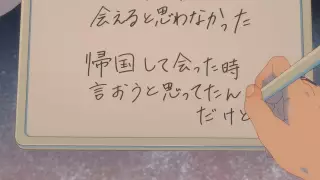 会えると思わなかった
帰国して会った時
言おうと思ってたん
だけと